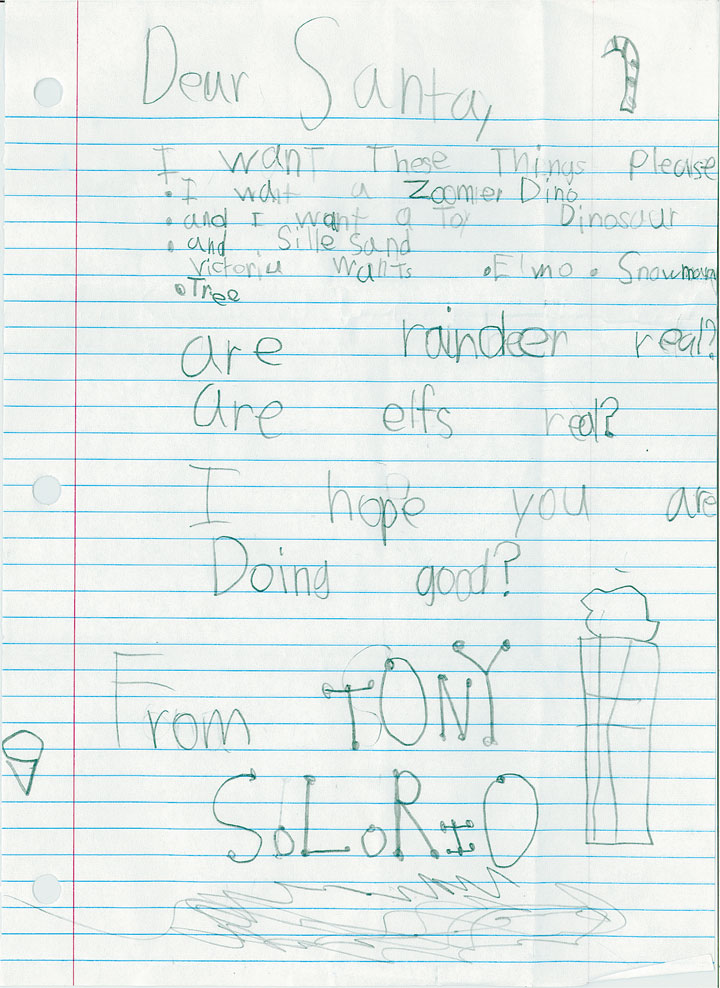 Dear Santa,
I want These Things Please
• I want a Zoomer Dino
• and I want a Toy Dinosaur
• and Sille Sand
Victoria wants • Elmo • Snowman
• Tree
are raindeer real?
are elfs real?
I hope you are
Doing good?
From TONY
SoLoRIO